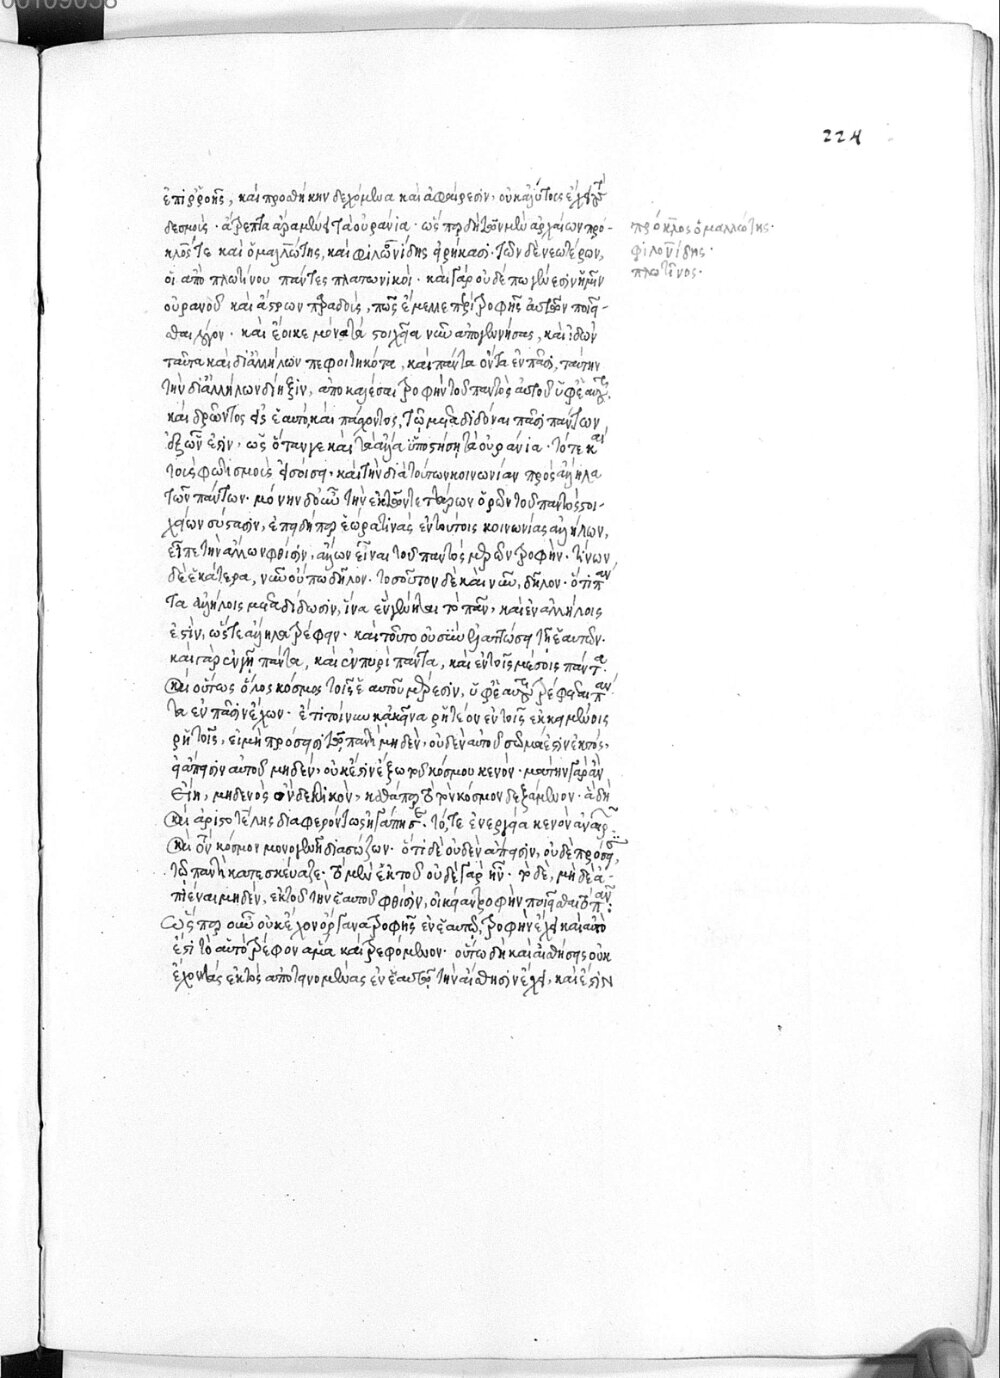 224
ἐπιρροῆς, καὶ προσθήκην δεχόμενα καὶ ἀφαίρεσιν· οὐκ ἀλύτοις ἔχεται
δεσμοῖς· ἄτρεπτα ἄρα μένει τὰ οὐράνια· ὥσπερ δὴ τῶν μὲν ἀρχαίων πρό-
κλός τε καὶ ὁ μαλλώτης, καὶ φιλωνίδης εἰρήκασι· τῶν δὲ νεωτέρων,
οἱ ἀπὸ πλωτίνου πάντες πλατωνικοί· καὶ γὰρ οὐδέπω γένεσιν ἡμῖν
οὐρανοῦ καὶ ἄστρων παραδοὺς, πῶς ἔμελλε περὶ τροφῆς αὐτῶν ποιεῖ-
σθαι λόγον· καὶ ἔοικε μόνα τὰ στοιχεῖα νῦν ἀπογεννήσας, καὶ ἰδὼν
ταῦτα καὶ δι' ἀλλήλων πεφοιτηκότα, καὶ πάντα ὄντα ἐν πᾶσι, ταύτην
τὴν δι' ἀλλήλων διῆξιν, ἀποκαλέσαι τροφὴν τοῦ παντὸς αὐτοῦ ὑφ' ἑαυτοῦ·
καὶ δρῶντος εἰς ἑαυτὸ, καὶ πάσχοντος, τῷ μεταδιδόναι πᾶσι πάντων
ὡς ὅταν γε καὶ τὰ ἄλλα ὑποστήσῃ τὰ οὐράνια· τότε καὶ
τοῖς φωτισμοῖς καὶ τὴν διὰ τούτων κοινωνίαν πρὸς ἄλληλα
τῶν πάντων· μόνην δ' οὖν τὴν ἐκ τῶν τεττάρων ὁρῶν τοῦ παντὸς στοι-
χείων σύστασιν, ἐπειδήπερ ἑώρα τινὰς ἐν τούτοις κοινωνίας ἀλλήλων,
εἶπε τὴν ἄλλων φθίσιν, ἄλλων εἶναι τοῦ παντὸς μερῶν τροφήν· τίνων
δὲ ἑκάτερα, νῦν οὔπω δῆλον· τοσοῦτον δὲ καὶ νῦν, δῆλον· ὅτι πάν
τα ἀλλήλοις μεταδίδωσιν, ἵνα ἓν γένηται τὸ πᾶν, καὶ ἐν ἀλλήλοις
ἐστὶν, ὥστε ἄλληλα τρέφειν· καὶ τοῦτο οὐσίαν
καὶ γὰρ ἐν γῇ πάντα, καὶ ἐν πυρὶ πάντα, καὶ ἐν τοῖς μέσοις πάντα·
καὶ οὕτως ὅλος κόσμος τοῖς ἑαυτοῦ μέρεσιν, ὑφ' ἑαυτοῦ τρέφεται πάν
τα ἐν πᾶσιν ἔχων· ἔτι τοίνυν κἀκεῖνα ῥητέον ἐν τοῖς ἐκκειμένοις
ῥητοῖς, εἰ μὴ πρόσεισι τῷ παντὶ μηδὲν, οὐδὲν αὐτοῦ σῶμά ἐστιν ἐκτός,
εἰ ἄπεισιν αὐτοῦ μηδὲν, οὐκ ἔστιν ἔξω τοῦ κόσμου κενόν· μάτην γὰρ ἂν
εἴη, μηδενὸς ὂν δεκτικὸν, καθάπερ τὸ τὸν κόσμον δεξάμενον· ἃ δὴ
καὶ ἀριστοτέλης διαφερόντως ἠγάπησε· τό, τε ἐνεργείᾳ κενὸν ἀναιρῶν
καὶ τὸν κόσμον μονογενῆ διασώζων· ὅτι δὲ οὐδὲν ἄπεισιν, οὐδὲ πρόσεισι,
τῷ παντὶ κατεσκεύαζε· τὸ μὲν ἐκ τοῦ οὐδὲ γὰρ ἦν· τὸ δὲ, μηδὲ ἀ-
πιέναι μηδὲν, ἐκ τοῦ τὴν ἑαυτοῦ φθίσιν, οἰκείαν τροφὴν ποιεῖσθαι τὸ πᾶν:
Ὥσπερ οὖν οὐκ ἔχον ὄργανα τροφῆς ἐν ἑαυτῷ, τροφὴν ἔχει καὶ αὐτὸ
ἐστὶ τὸ αὐτὸ τρέφον ἅμα καὶ τρεφόμενον· οὕτω δὴ καὶ αἰσθήσεις οὐκ
ἔχον τὰς ἐκτὸς ἀποτεινομένας ἐν ἑαυτῷ τὴν αἴσθησιν ἔχει, καὶ ἐστὶν
πρόκλος ὁ μαλλώτης·
φιλονίδης·
πλωτῖνος·